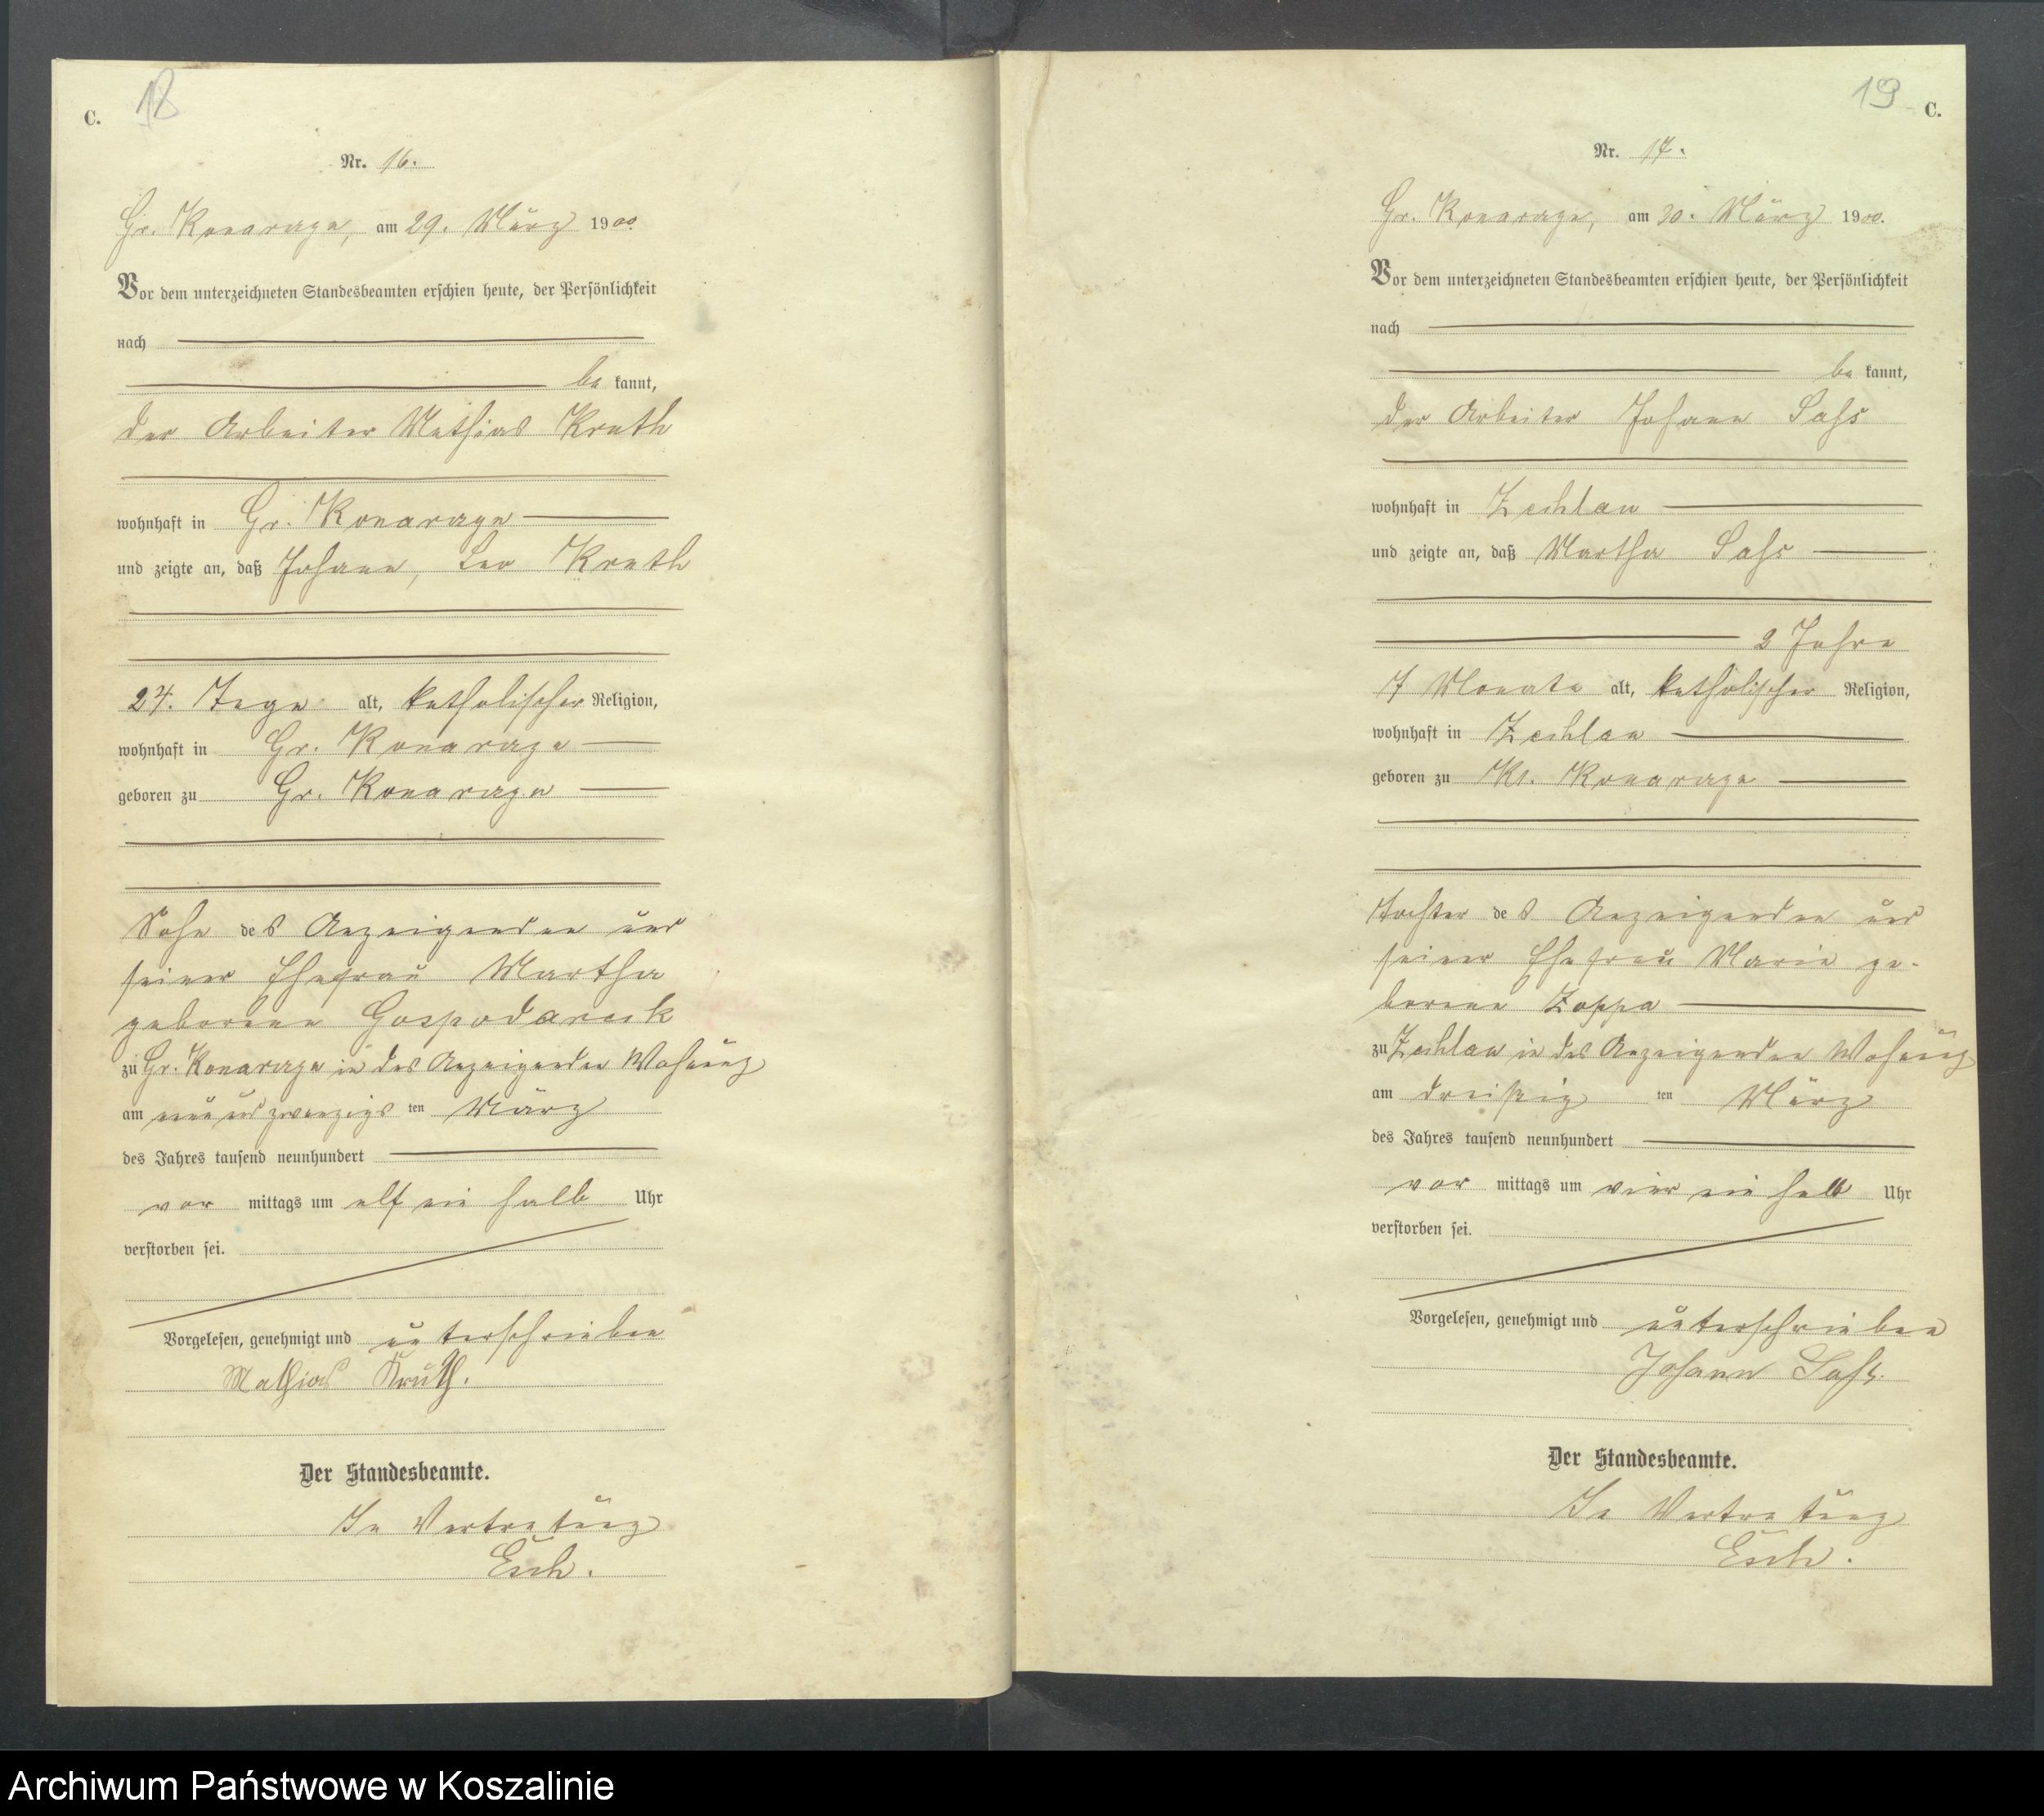 C. 18
Nr. 16.
Gr. Konarczyn, am 29. März 1900.
Vor dem unterzeichneten Standesbeamten erschien heute, der Persönlichkeit
nach
be kannt,
der Arbeiter Mathias Kruth
wohnhaft in Gr. Konarczyn
und zeigte an, daß Johann, Leo Kruth
24. Tage alt, katholischer Religion,
wohnhaft in Gr. Konarczyn
geboren zu Gr. Konarczyn
Sohn des Anzeigenden und
seiner Ehefrau Martha
geborene Gospodareck
zu Gr. Konarczyn in des Anzeigenden Wohnung
am neun und zwanzigs ten März
des Jahres tausend neunhundert
vor mittags um elf ein halb Uhr
verstorben sei.
Vorgelesen, genehmigt und unterschrieben
Mathias Kruth.
Der Standesbeamte.
In Vertretung
Esch.
19 C.
Nr. 17.
Gr. Konarczyn, am 30. März 1900.
Vor dem unterzeichneten Standesbeamten erschien heute, der Persönlichkeit
nach
be kannt,
der Arbeiter Johann Sahs
wohnhaft in Zechlau
und zeigte an, daß Martha Sahs
2 Jahre
7 Monate alt, katholischer Religion,
wohnhaft in Zechlau
geboren zu Kl. Konarczyn
Tochter des Anzeigenden und
seiner Ehefrau Marie ge-
borene Zoppa
zu Zechlau in des Anzeigenden Wohnung
am dreißig ten März
des Jahres tausend neunhundert
vor mittags um vier ein halb Uhr
verstorben sei.
Vorgelesen, genehmigt und unterschrieben
Johann Sahs.
Der Standesbeamte.
In Vertretung
Esch.
Archiwum Państwowe w Koszalinie